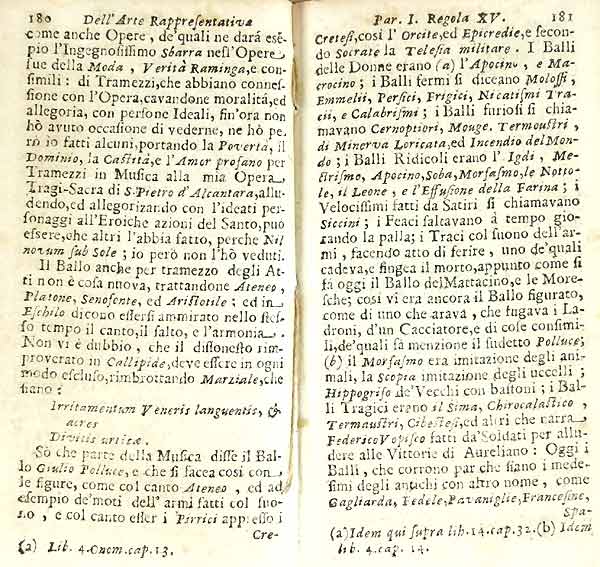 180 Dell'Arte Rappresentativa
come anche Opere, de'quali ne dará esē-
pio l'Ingegnosissimo Sbarra nell'Opere
sue della Moda, Verità Raminga, e con-
simili: di Tramezzi, che abbiano connes-
sione con l'Opera, cavandone moralità, ed
allegoria, con persone Ideali, fin'ora non
hò avuto occasione di vederne, nè hò pe-
rò io fatti alcuni, portando la Povertà, il
Dominio, la Castità, e l'Amor profano per
Tramezzi in Musica alla mia Opera
Tragi-Sacra di S. Pietro d'Alcantara, allu-
dendo, ed allegorizando con l'ideati per-
sonaggi all'Eroiche azioni del Santo, può
essere, che altri l'abbia fatto, perche Nil
novum sub Sole; io però non l'hò veduti.
Il Ballo anche per tramezzo degli At-
ti non è cosa nuova, trattandone Ateneo,
Platone, Senofonte, ed Aristotile; ed in
Eschilo dicono essersi ammirato nello stes-
so tempo il canto, il salto, e l'armonia.
Non vi è dubbio, che il disonesto rim-
proverato in Callipide, deve essere in ogni
modo escluso, rimbrottando Marziale, che
siano:
Irritamentum Veneris languentis, &
acres
Divitis urticæ.
Sò che parte della Musica disse il Bal-
lo Giulio Polluce, e che si facea cosi con
le figure, come col canto Ateneo, ed ad
esempio de'moti dell'armi fatti col suo-
no, e col canto esser i Pirrici appresso i
Cre-
(a) Lib. 4. Onom. cap. 13.
Par. I. Regola XV. 181
Cretesi, cosi l'Orcite, ed Epicredie, e secon-
do Socrate la Telesia militare. I Balli
delle Donne erano (a) l'Apocino, e Ma-
crocino; i Balli fermi si diceano Molossi,
Emmelii, Persici, Frigici, Nicatismi Tra-
cii, e Calabrismi; i Balli furiosi si chia-
mavano Cernoptiori, Mouge. Termoustri,
di Minerva Loricata, ed Incendio del Mon-
do; i Balli Ridicoli erano l'Igdi, Me-
ctrismo, Apocino, Soba, Morfasmo, le Notto-
le, il Leone, e l'Effusione della Farina; i
Velocissimi fatti da Satiri si chiamavano
Siccini; i Feaci saltavano à tempo gio-
rando la palla; i Traci col suono dell'ar-
mi, facendo atto di ferire, uno de'quali
cadeva, e fingea il morto, appunto come si
fà oggi il Ballo del Mattacino, e le More-
sche; cosi vi era ancora il Ballo figurato,
come di uno che arava, che fugava i La-
droni, d'un Cacciatore, e di cose consimi-
li, de'quali fà menzione il sudetto Polluce;
(b) il Morfasmo era imitazione degli ani-
mali, la Scopia imitazione degli uccelli;
Hippogriso de'Vecchi con bastoni; i Bal-
li Tragici erano il Sima, Chirocalastico,
Termaustri, Cibestesi, ed altri che narra
Federico Vopisco fatti da'Soldati per allu-
dere alle Vittorie di Aureliano: Oggi i
Balli, che corrono par che siano i mede-
simi degli antichi con altro nome, come
Gagliarda, Fedele, Pavaniglie, Francesine,
Spa-
(a) Idem qui supra lib. 14. cap. 32. (b) Idem
lib. 4. cap. 14.